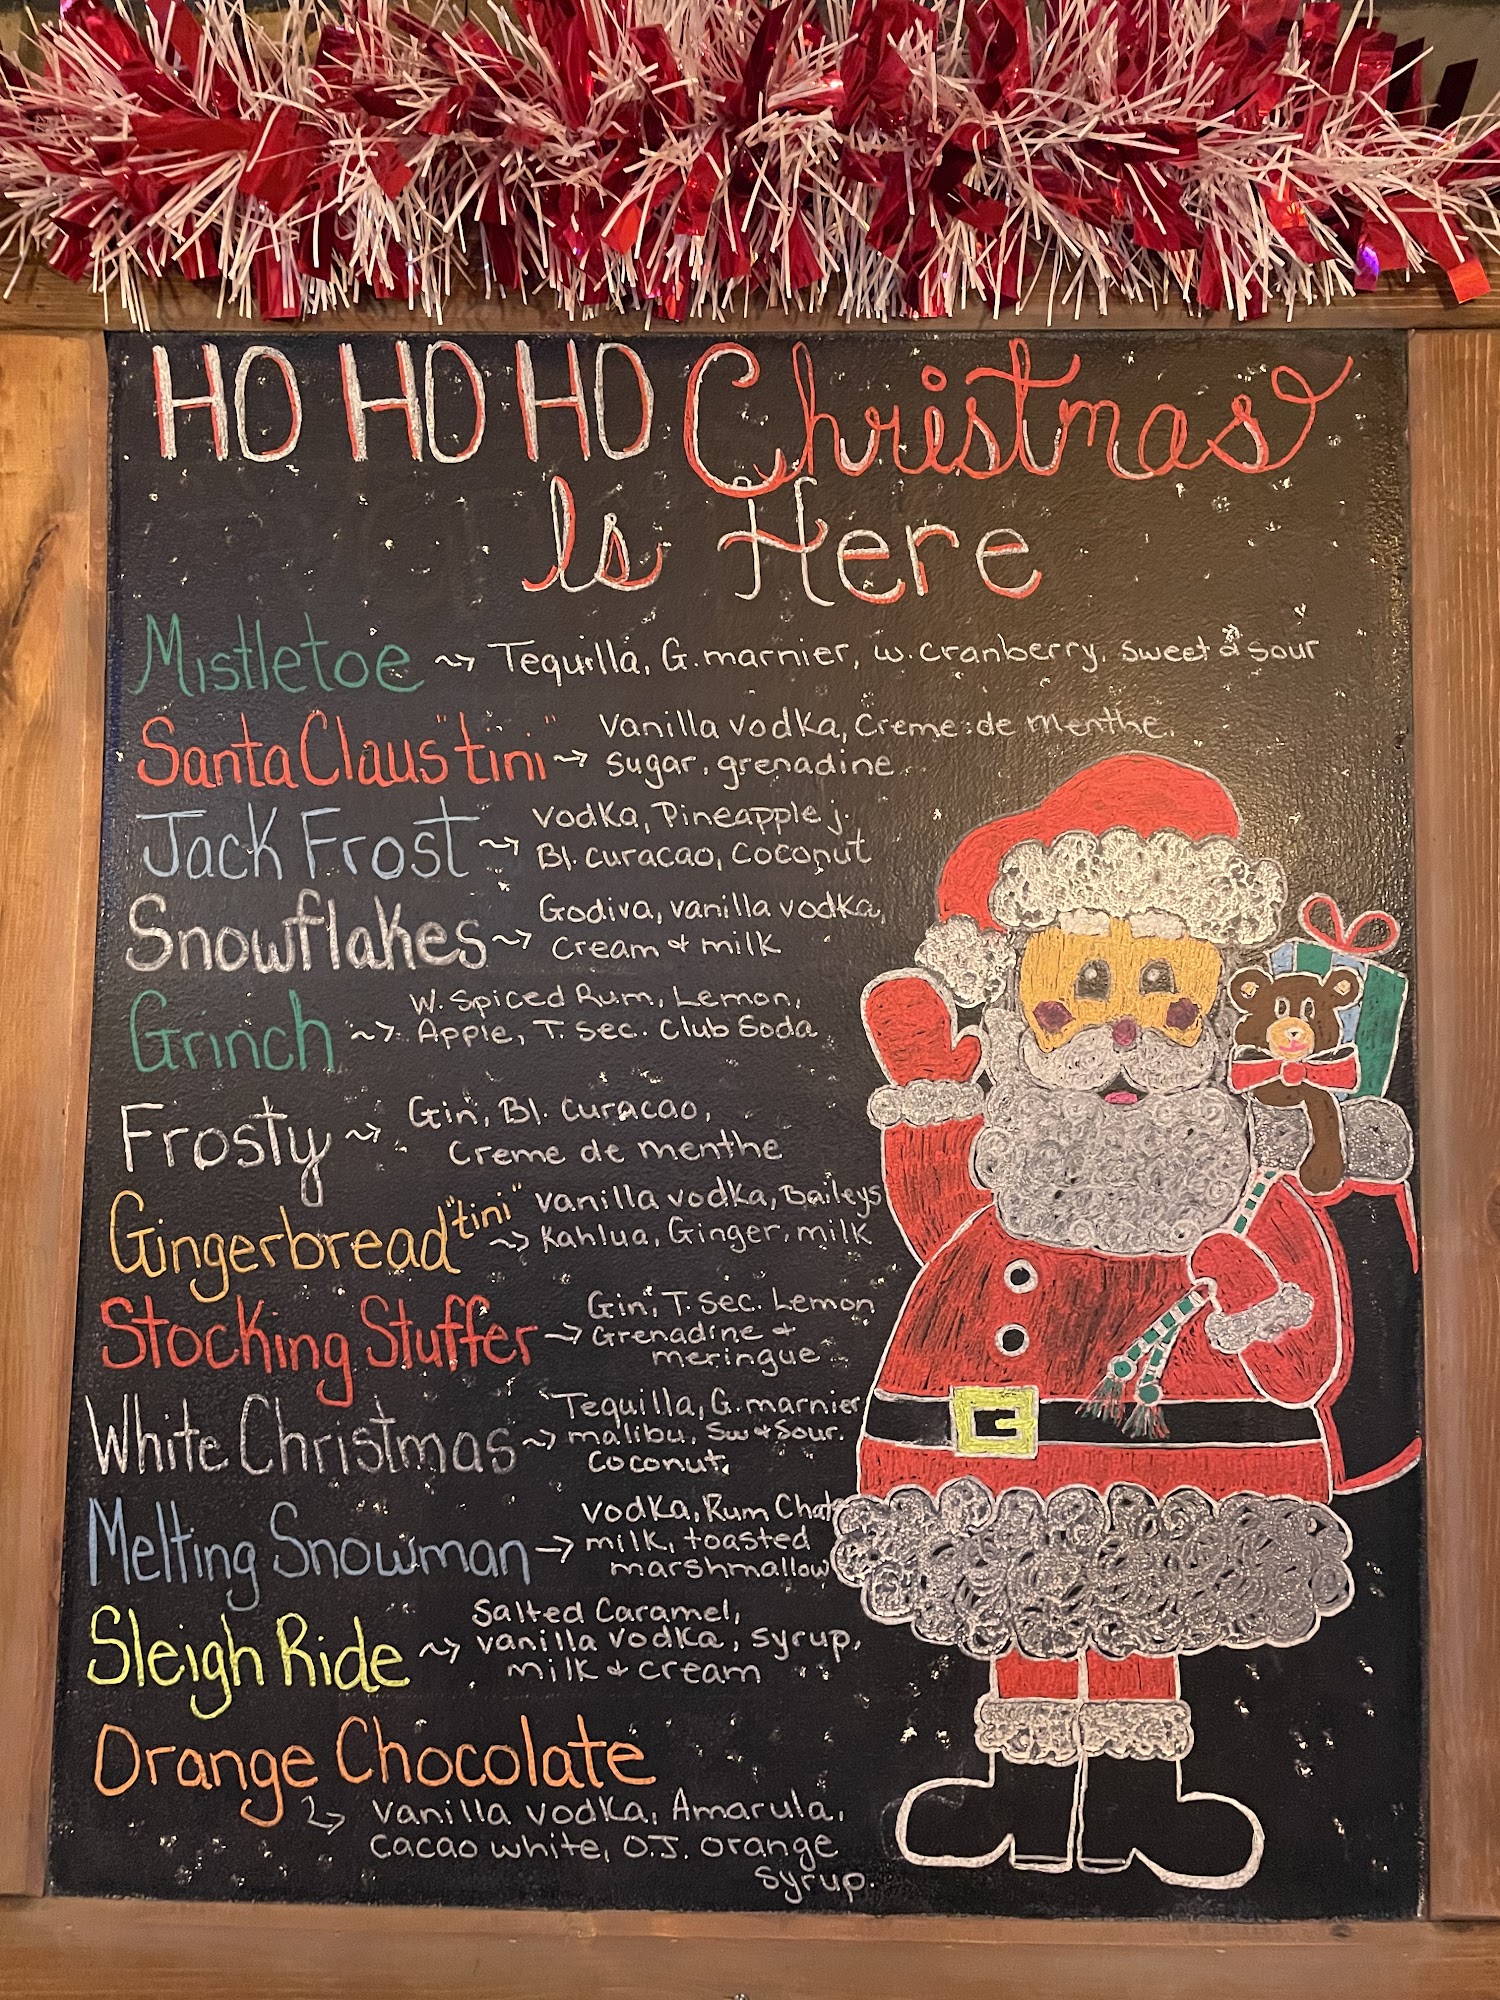 HO HO HO Christmas
Is Here
Mistletoe Tequilla, G. marnier, w. cranberry, sweet & sour
Santa Claus "tini" Vanilla vodka, Creme de menthe,
sugar, grenadine
Jack Frost Vodka, Pineapple j.
Bl. curacao, coconut
Snowflakes Godiva, vanilla vodka,
cream & milk
Grinch W. Spiced Rum, Lemon,
Apple, T. Sec. Club Soda
Frosty Gin, Bl. Curacao,
Creme de menthe
Gingerbread "tini" vanilla vodka, Baileys
Kahlua, Ginger, milk
Stocking Stuffer Gin, T. Sec. Lemon
Grenadine &
meringue
White Christmas Tequilla, G. marnier
malibu, Sw & Sour.
Coconut.
Melting Snowman Vodka, Rum Chata
milk, toasted
marshmallow
Sleigh Ride Salted Caramel,
vanilla vodka, syrup,
milk & cream
Orange Chocolate
vanilla vodka, Amarula,
cacao white, O.J. orange
syrup.